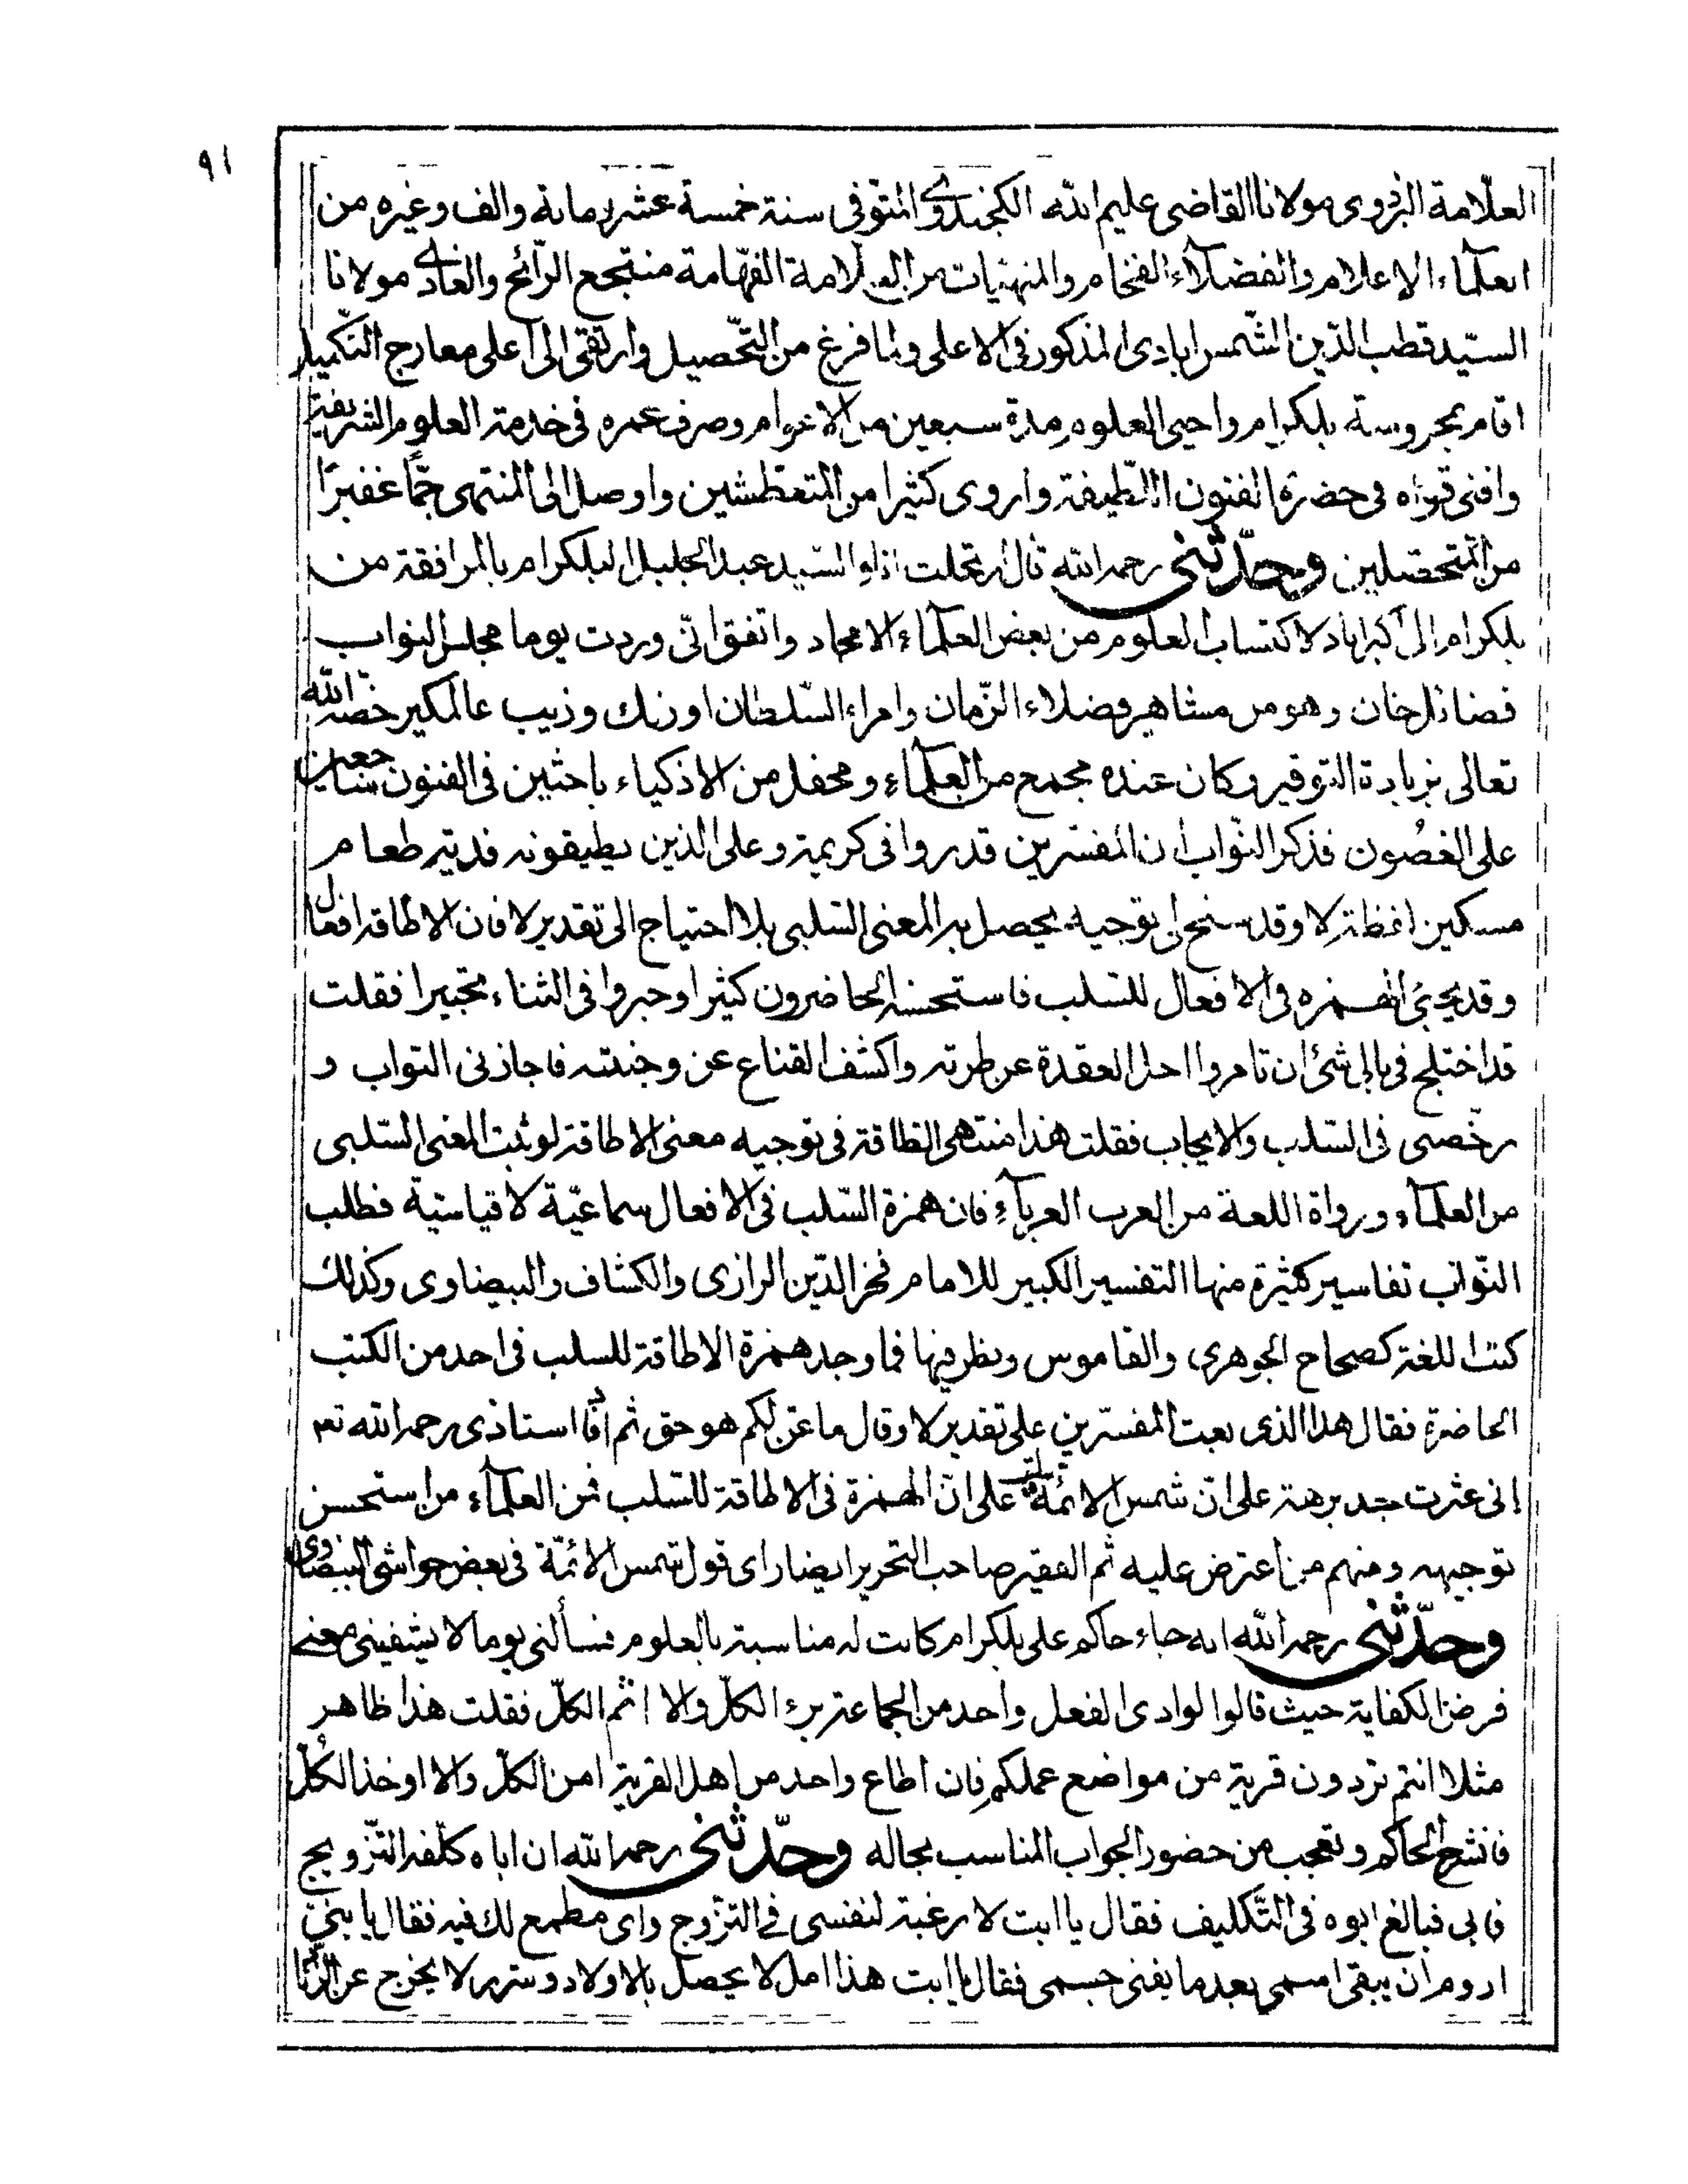 ٩١
العلّامة البزدوى مولانا القاضى عليم الله الكجندوى المتوفى سنة خمسة عشر ومائة والف وغيره من
العلمآء الاعلام والفضلآء الفخام والمنهيات من العلامة الفهّامة منتجع الرّائح والغادى مولانا
السيّد قطب الدّين الشّمس ابادى المذكور فى الاعلى ولما فرغ من التّحصيل وارتقى الى اعلى معارج التّكميل
اقام بمحروسة بلكرام واحيى العلوم مدة سبعين من الاعوام وصرف عمره فى خدمة العلوم الشريفة
وافنى قواه فى حضرة الفنون اللّطيفة واروى كثيرا من المتعطّشين واوصل الى المنتهى جمًّا غفيرًا
من المتحصّلين وحدّثنى رحمه الله قال ارتحلت انا والسّيد عبد الجليل البلكرام بالمرافقة من
بلكرام الى اكبراباد لاكتساب العلوم من بعض العلمآء الامجاد واتفق انّى وردت يوما مجلس النواب
فضائل خان وهو من مشاهير فضلاء الزّمان وامراء السّلطان اورنك وزيب عالمكير خصّه الله
تعالى بزيادة التوقير وكان عنده مجمع من العلمآء ومحفل من الاذكياء باحثين فى الفنون ساجعين
على الغصُون فذكر النّواب ان المفسّرين قدروا فى كريمة وعلى الذين يطيقونه فدية طعام
مسكين لفظة لا وقد سنح لى توجيه يحصل به المعنى السّلبى بلا احتياج الى تقدير لا فان الاطاقة افعال
وقد يجئ الهمزه فى الافعال للسّلب فاستحسنه الحاضرون كثيرا وحبروا فى الثناء تحبيرا فقلت
قد اختلج فى بالى شئ ان تامروا احل العقدة عن طرته واكشف القناع عن وجنته فاجازنى النواب و
رخّصى فى السّلب والايجاب فقلت هذا منتهى الطاقة فى توجيه معنى الاطاقة لو ثبت المعنى السّلبى
من العلمآء ورواة اللغة من العرب العربآء فان همزة السّلب فى الافعال سماعيّة لا قياسيّة فطلب
النّواب تفاسير كثيرة منها التفسير الكبير للامام فخر الدّين الرازى والكشاف والبيضاوى وكذلك
كتب اللغة كصحاح الجوهرى والقاموس ونظر فيها فما وجد همزة الاطاقة للسلب فى احد من الكتب
الحاضرة فقال هذا الذى بعث المفسّرين على تقدير لا وقال ما عن لكم هو حق ثم افاد استاذى رحمه الله تعـ
انى عثرت بعد برهة على انّ شمس الائمة على انّ الهمزة فى الاطاقة للسّلب فمن العلمآء من استحسن
توجيهه ومنهم من اعترض عليه ثم الفقير صاحب التحرير ايضا راى قول شمس الائمّة فى بعض حواشى البيضاوى
وحدّثنى رحمه الله انه جاء حاكم على بلكرام كانت له مناسبة بالعلوم فسألنى يوما لا يشفينى معنى
فرض الكفاية حيث قالوا لو ادى الفعل واحد من الجماعة برء الكلّ والا اثم الكلّ فقلت هذا ظاهر
مثلا انتم تردون قرية من مواضع عملكم فان اطاع واحد من اهل القرية امن الكلّ والا اوخذ الكُلّ
فانشرح الحاكم وتعجب من حضور الجواب المناسب بحاله وحدّثنى رحمه الله ان اباه كلّفه التّزويج
فابى فبالغ ابوه فى التّكليف فقال يا ابت لا رغبة لنفسى فى التزوج واى مطمع لك فيه فقال يا بنىّ
اروم ان يبقى اسمى بعد ما يفنى جسمى فقال يا ابت هذا امل لا يحصل بالاولاد وسترر لا يخرج عن الزّناد